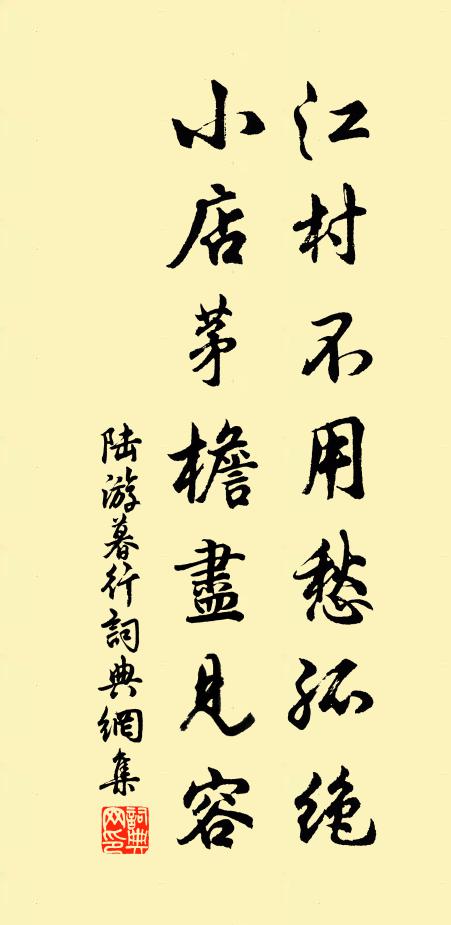 江村不用愁孤絶
小店茅檐盡見容
陆游暮行詞典網集
詞典网印